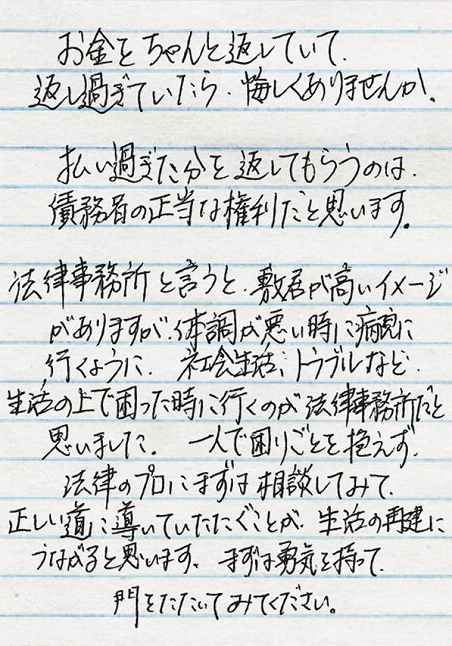 お金をちゃんと返していて、
返し過ぎていたら、悔しくありませんか。
払い過ぎた分を返してもらうのは、
債務者の正当な権利だと思います。
法律事務所と言うと、敷居が高いイメージ
がありますが、体調が悪い時に病院に
行くように、社会生活、トラブルなど、
生活の上で困った時に行くのが法律事務所だと
思いました。一人で困りごとを抱えず、
法律のプロにまずは相談してみて、
正しい道に導いていただくことが、生活の再建に
つながると思います。まずは勇気を持って、
門をたたいてみてください。